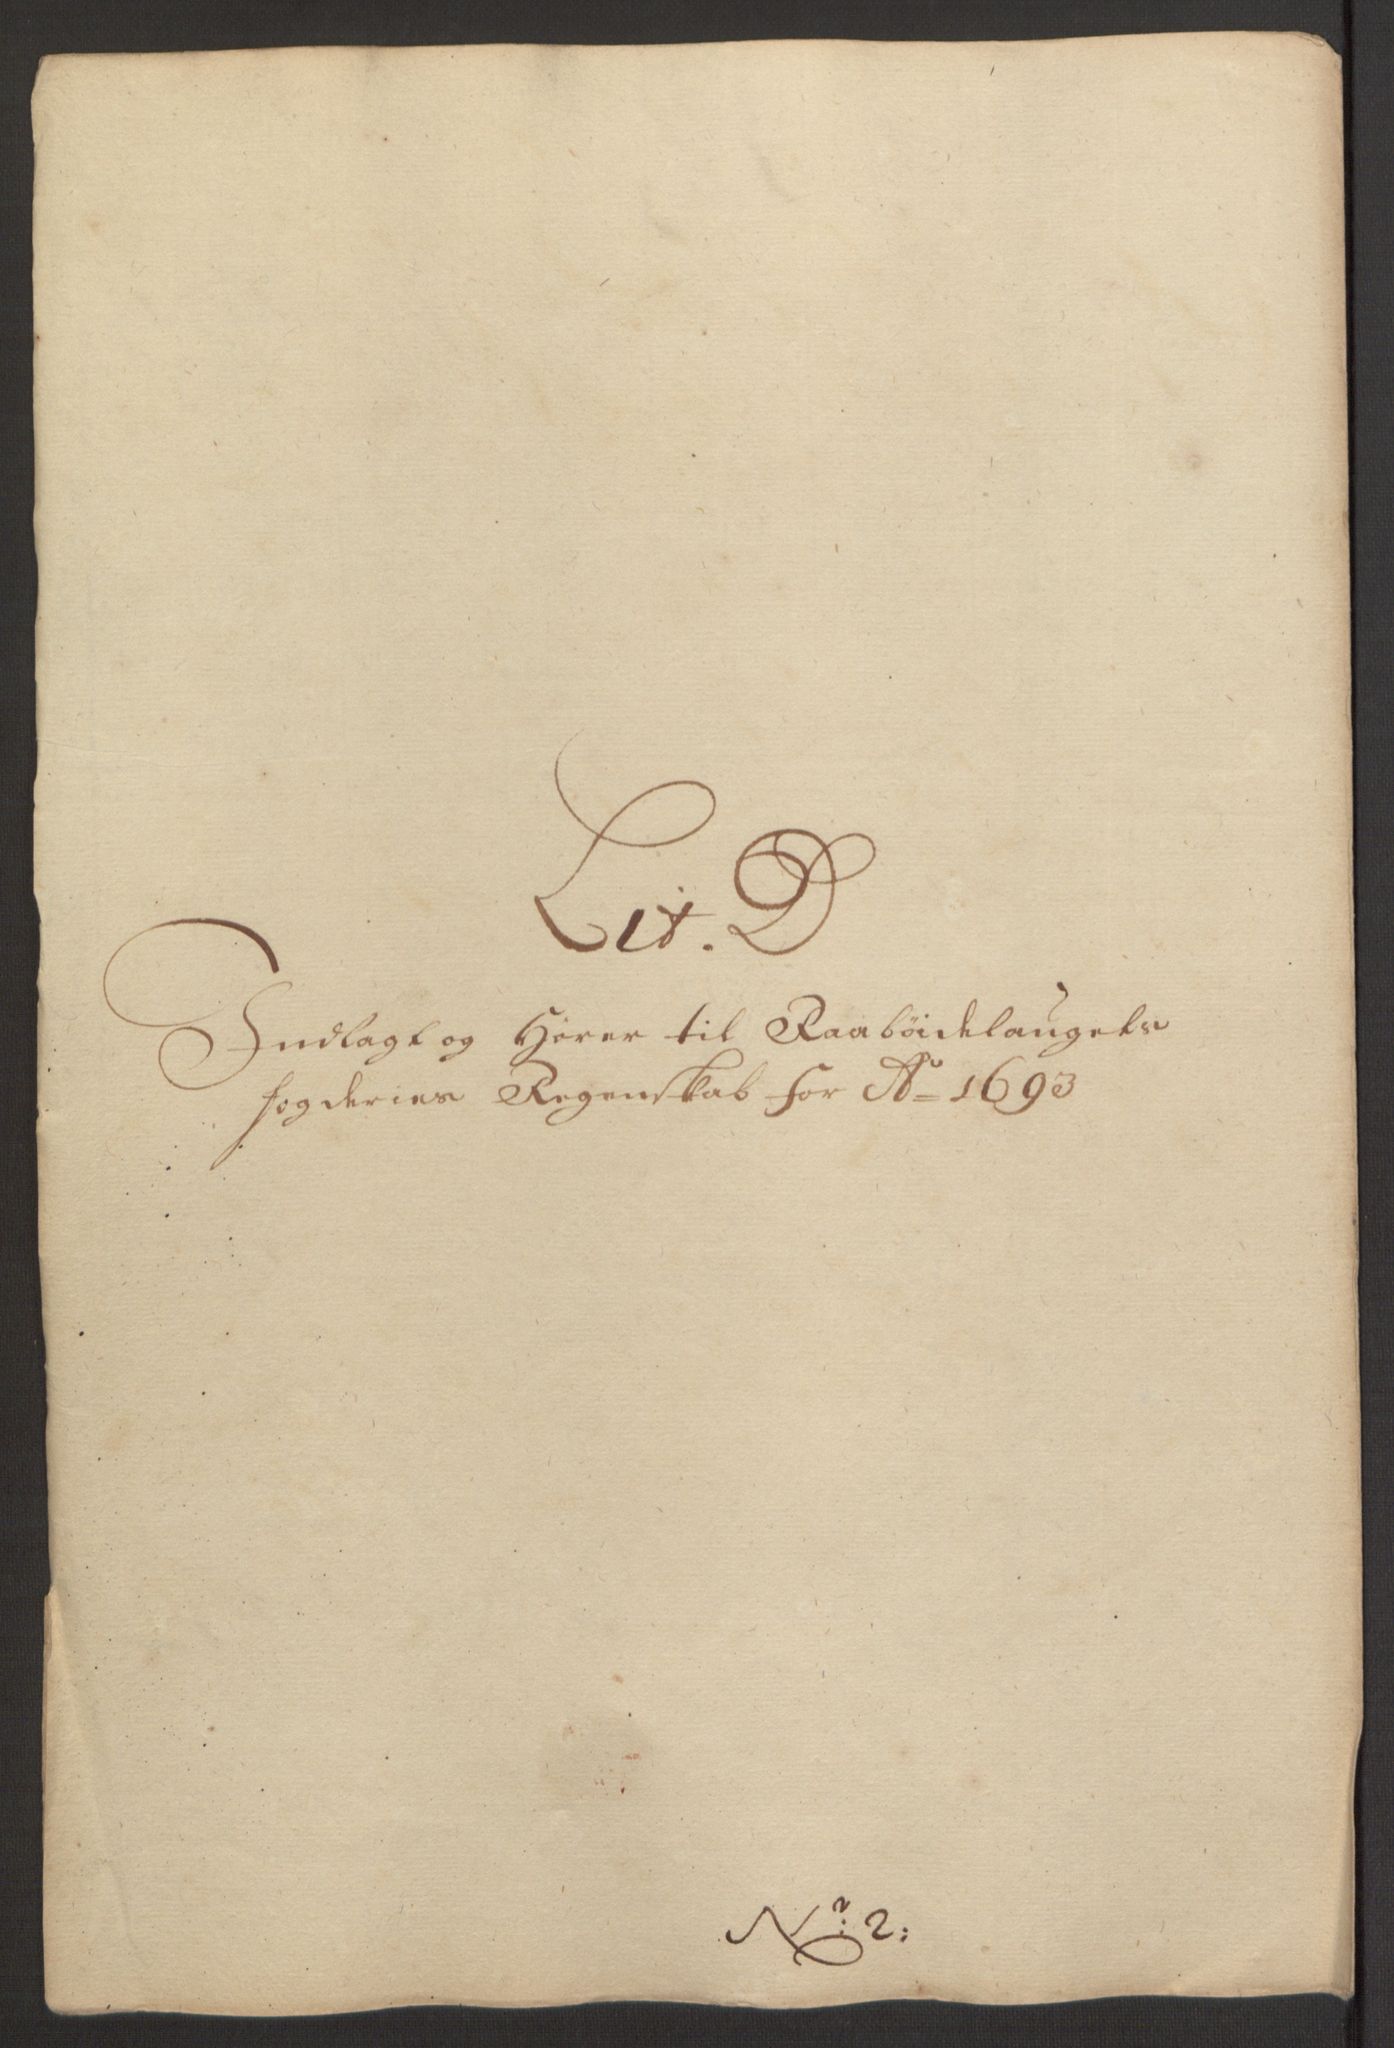 Lit. D
Indlagt og Hörer til Raaböidelaugets
fogderies Regenskab for Ao 1693
No: 2: